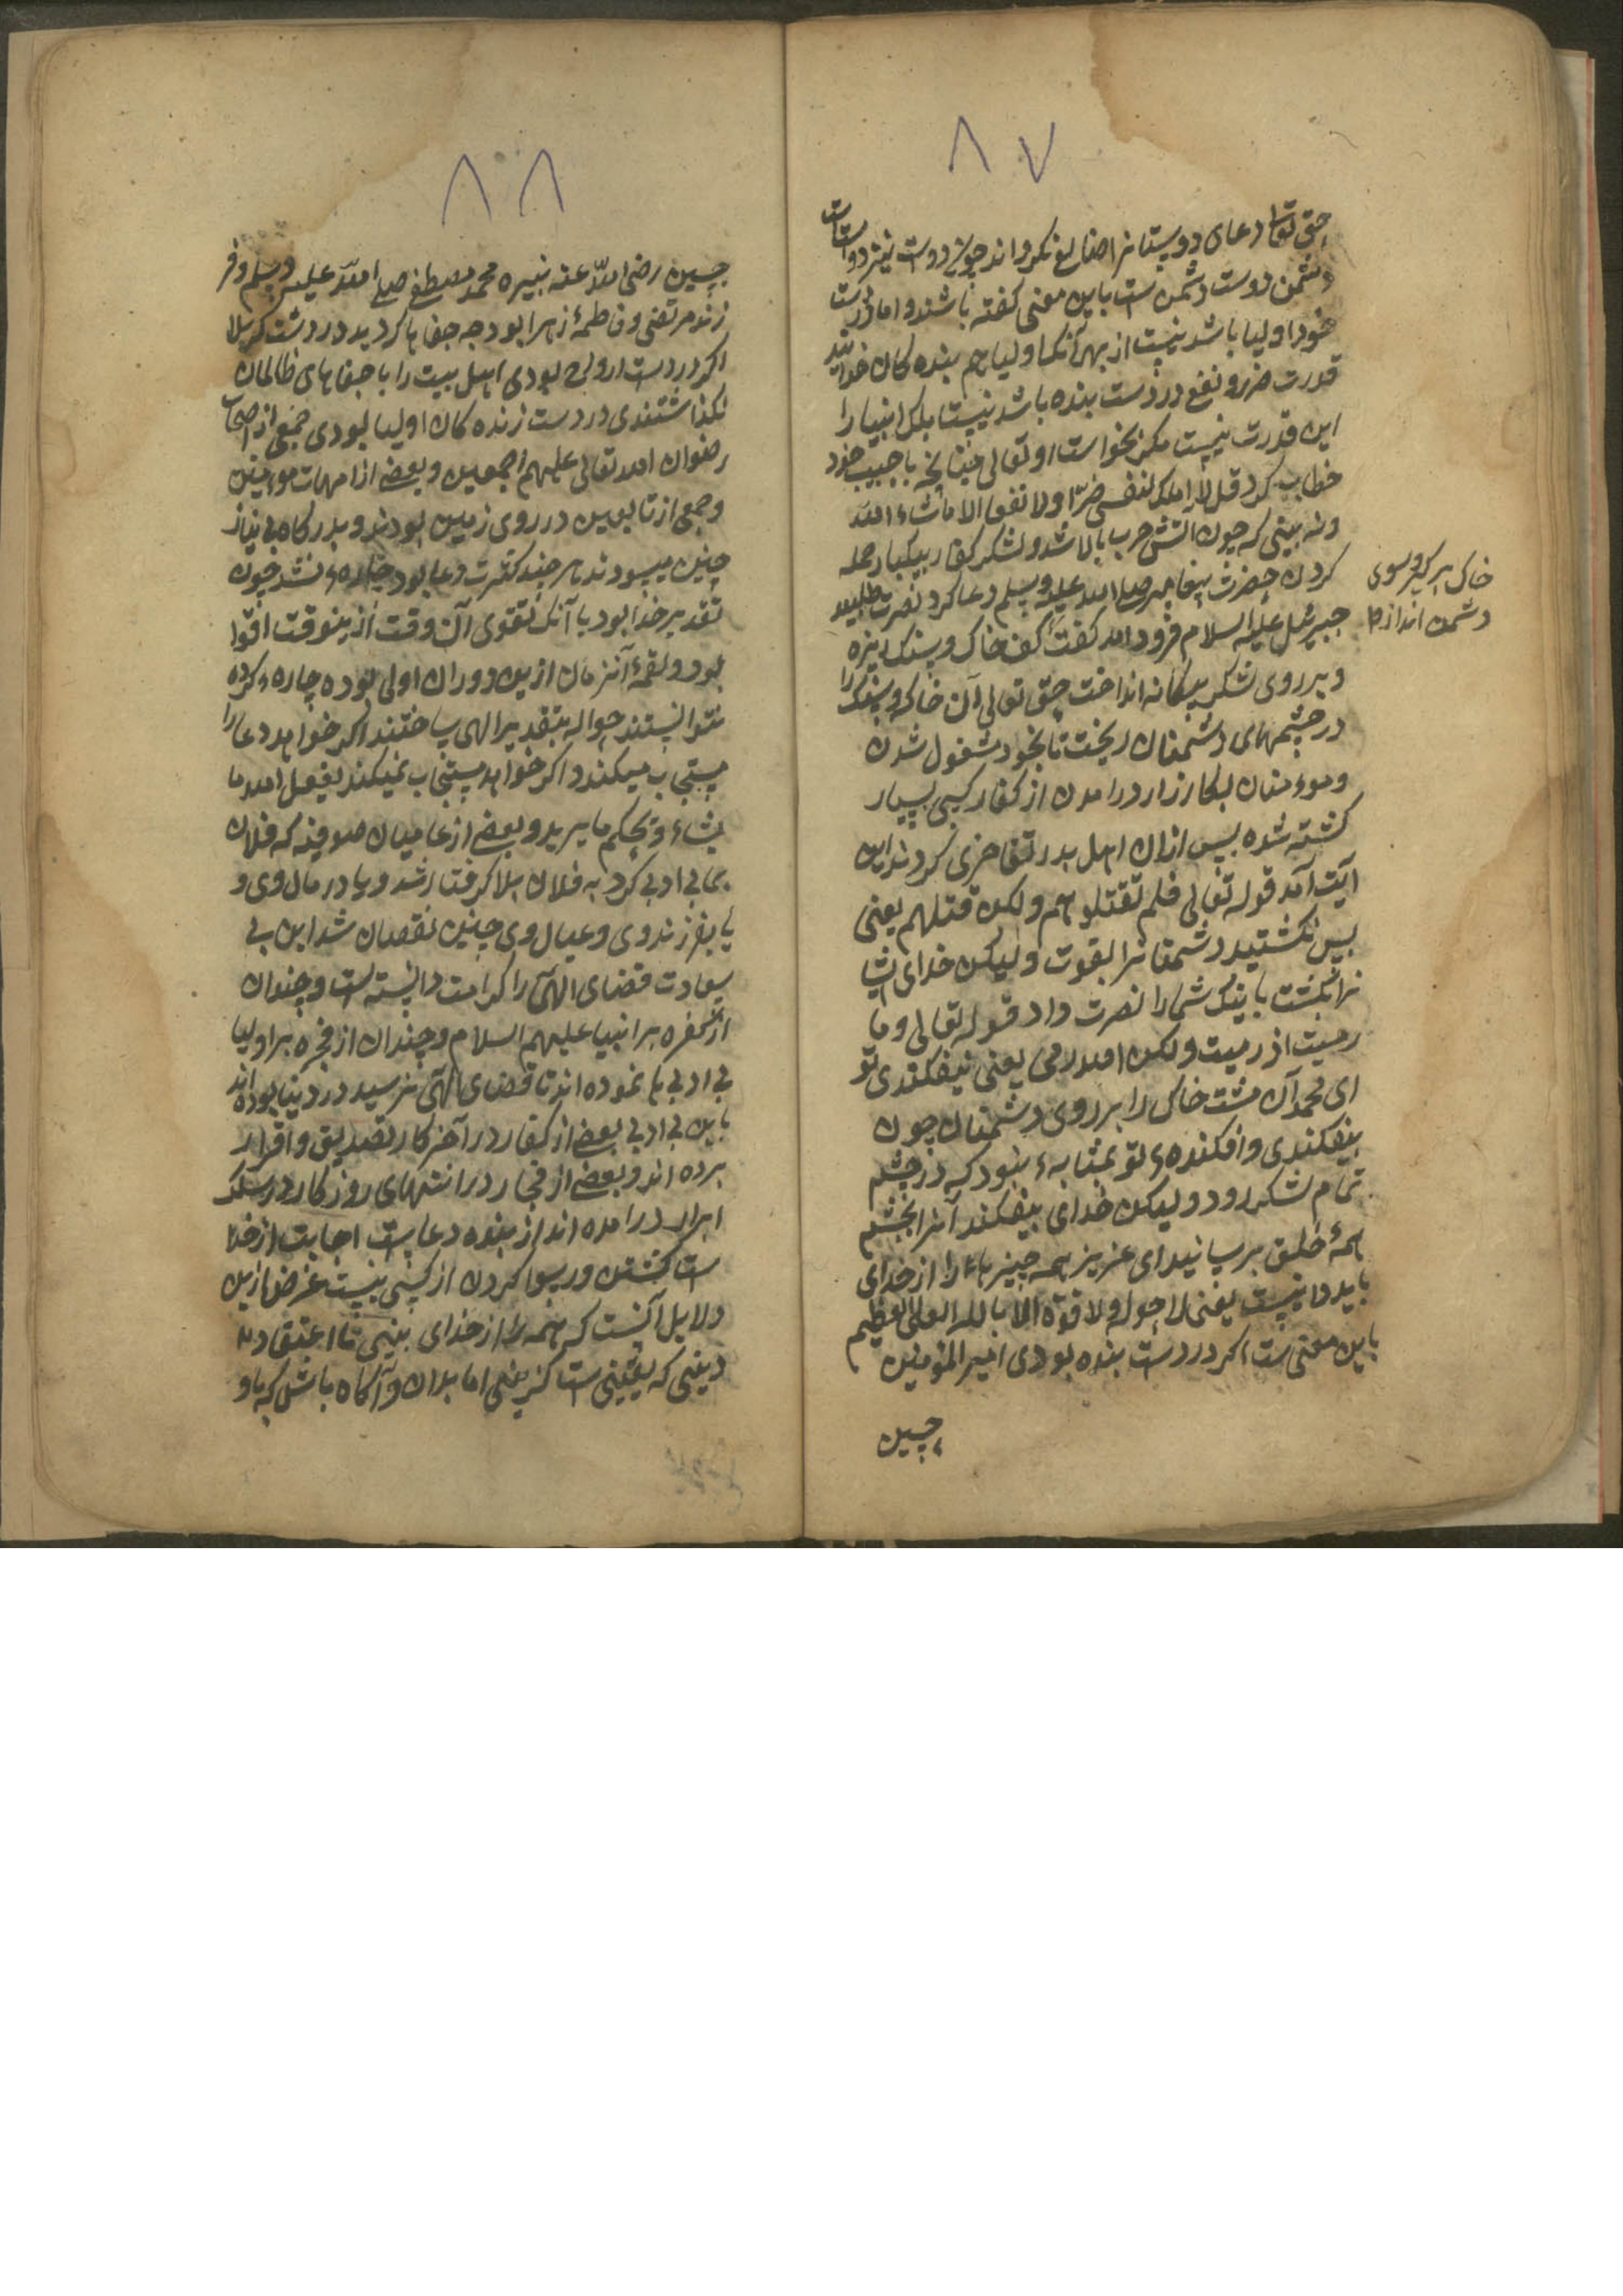 ٨٧
حق تعا دعای دوستانرا ضایع نکرداند چون دوست نیز دوست است
دشمن دوست دشمن ست باین معنی کفته باشند و اما در دست
خود اولیا باشد نیست از بهر آنکه اولیا هم بنده کان خدایند
قدرت ضر و نفع در دست بنده باشد نیست بلک انبیا را
این قدرت نیست مکر بخواست او تعالی چنانچه با حبیب خود
خطاب کرد قل لا املک لنفسی ضرّا ولا نفعا الا ماشاء الله
و نه بینی که چون اتش حرب بالا شد و لشکر کفار بیکبار حمله
کردن حضرت پیغامبر صلی الله علیه وسلم دعا کرد نصرت طلبید
جبرئیل علیه السلام فرود امد کفت کف خاک و سنک ریزه
خاک بر کیر و سوی
دشمن انداز
و بر روی لشکر بیکانه انداخت حق تعالی آن خاک و سنک را
در چشمهای دشمنان ریخت تا بخود مشغول شدن
و موءمنان بکارزار درامدن از کفار کسی بسیار
کشته شده پس ازان اهل بدر تفاخری کردند این
آیت آمد قوله تعالی فلم تقتلوهم ولکن قتلهم یعنی
پس نکشتید دشمنانرا بقوت ولیکن خدای ایشا
نرا بکشت باینک شما را نصرت داد قوله تعالی وما
رمیت اذ رمیت ولکن الله رمی یعنی نیفکندی تو
ای محمد آن مشت خاک را بر روی دشمنان چون
بیفکندی و افکنده‌ء تو بمثابهء نبود که در چشم
تمام لشکر رود ولیکن خدای بیفکند آنرا بچشم
همهٔ خلق برسانید ای عزیز همه چیزها را از خدای
باید دانیست یعنی لا حول ولا قوة الا بالله العلی العظیم
باین معنی ست اکر در دست بنده بودی امیر المومنین
حسین
٨٨
حسین رضی الله عنه نبیره محمد مصطفی صلی الله علیه وسلم و فر
زند مرتضی و فاطمهٔ زهرا بود چه جفاها کردید در دشت کربلا
اکر در دست ارواح بودی اهل بیت را با جفاهای ظالمان
نکذاشتندی در دست زنده کان اولیا بودی جمعی از اصحاب
رضوان الله تعالی علیهم اجمعین و بعضی از امهات موءمنین
و جمعی از تابعین در روی زمین بودند و بدرکاه بی نیاز
چنین میبودند هر چند کثرت دعا بود چاره‌ء نشد چون
تقدیر خدا بود با آنک تقوی آن وقت ازینوقت اقوا
بود و لقمهٔ آنزمان ازین دوران اولی بوده چاره‌ء کرده
نتوانستند حواله بتقدیر الهی ساختند اکر خواهد دعا را
مستجاب میکند و اکر خواهد مستجاب نمیکند یفعل الله ما
یشاء و یحکم ما یرید و بعضی از عامیان صوفیه که فلان
بمابی ادبی کرد به فلان بلا کرفتار شد و یا در مال وی و
یا بفرزند وی و عیال وی چنین نقصان شد این بی
سعادت قضای الهی را کرامت دانسته است و چندان
از کفره بر انبیا علیهم السلام و چندان از فجره بر اولیا
بی ادبی ها نموده اند تا قضای الهی نرسید در دنیا بوده اند
باین بی ادبی بعضی از کفار در آخر کار تصدیق و اقرار
برده اند و بعضی از فجار در انتهای روزکار در سلک
ابرار درامده اند از بنده دعاست اجابت از خدا
ست کشتن و رسوا کردن از کسی نیست غرض ازین
دلایل آنست که همه را از خدای بینی تا اعتقاد
دینی که یقینی ست کزینی اما بدان و آکاه باش که باو